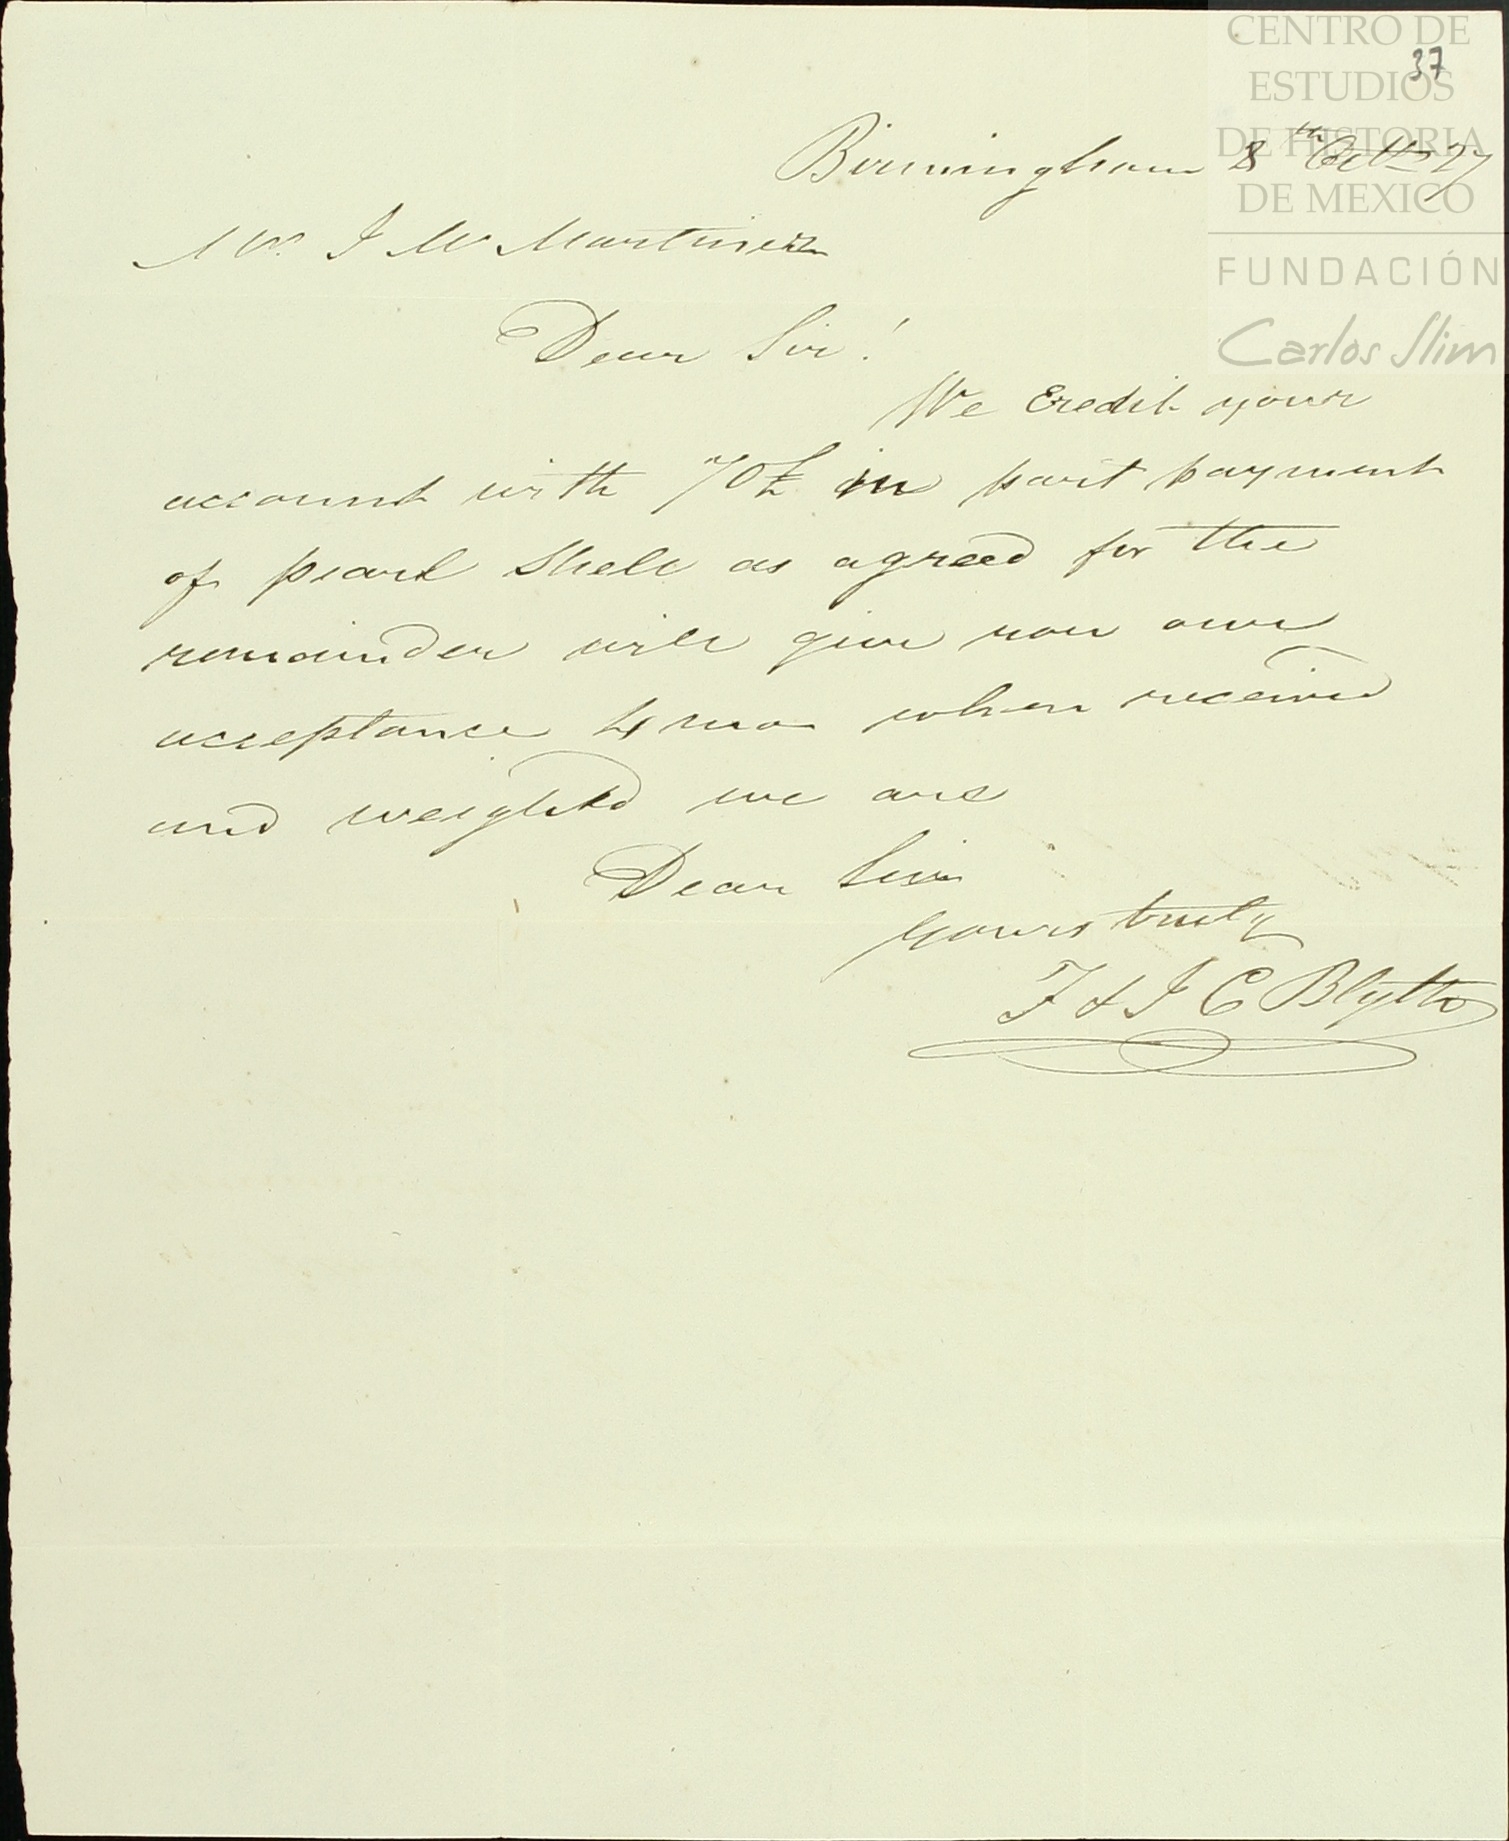 CENTRO DE
ESTUDIOS
DE HISTORIA
DE MEXICO
FUNDACIÓN
Carlos Slim
37
Birmingham 8th Octr 27
Mr. J M Martinez
Dear Sir!
We Credit your
account with 70£ in part payment
of pearl Shell as agreed for the
remainder will give you our
acceptance 4 mo when received
and weighted we are
Dear Sir
Yours truly
F & J C Blyth